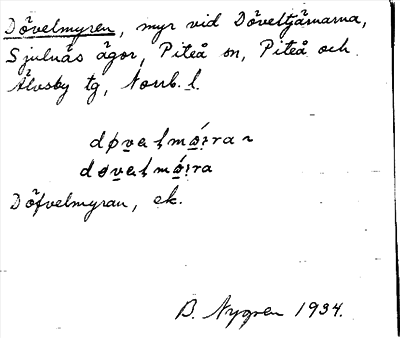 Dövelmyren, myr vid Döveltjärnarna,
Sjulnäs ägor, Piteå sn, Piteå och
Älvsby tg, Norrb. l.
Döfvelmyran, ek.
B. Nygren 1934.